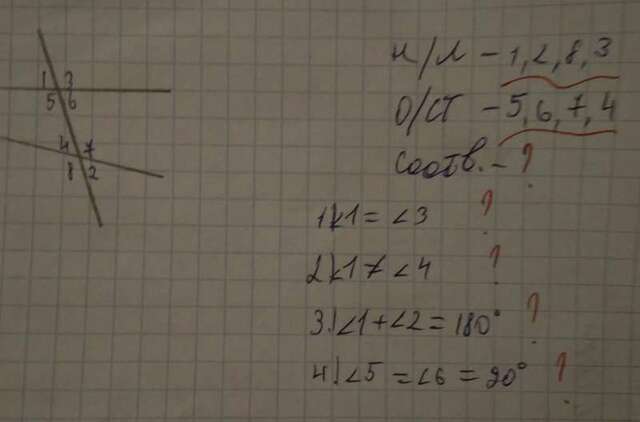 1 3
5 6
4 7
8 2
н/л – 1, 2, 8, 3
О/СТ – 5, 6, 7, 4
Соотв. – ?
1) ∠1 = ∠3 ?
2) ∠1 ≠ ∠4 ?
3) ∠1 + ∠2 = 180° ?
4) ∠5 = ∠6 = 90° ?